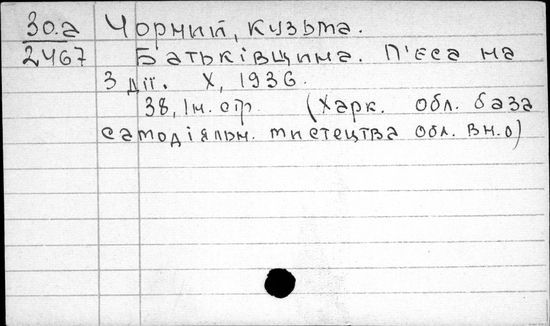 30.а Чорний, Кузьма.
2467 Батьківщина. П'єса на
3 дії. Х, 1936.
38, Ін. стр. (Харк. обл. база
самодіяльн. мистецтва обл. вн. о)